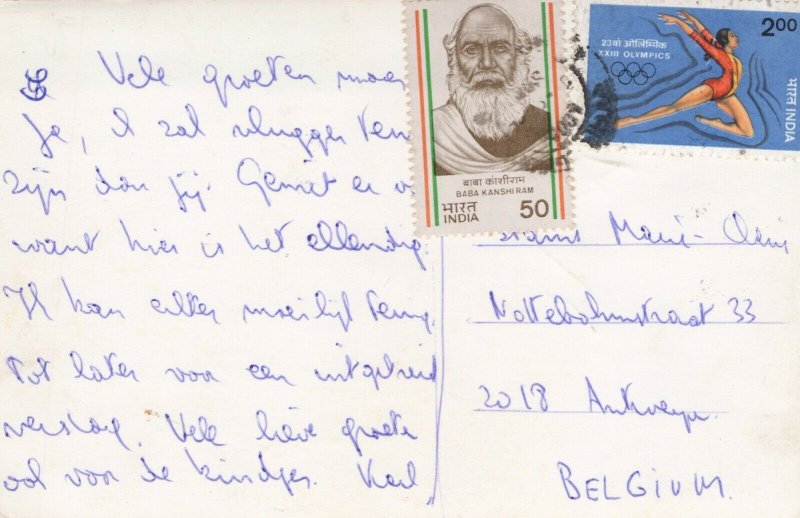 Vele groeten
Ja, ik zal vlugger terug
zijn dan jij. Geniet er
want hier is het ellendig.
Ik kan echter moeilijk terug.
Tot later voor een uitgebreid
verslag. Vele lieve groeten
ook voor de kindjes. Karl
बाबा कांशीराम
BABA KANSHIRAM
भारत
INDIA 50
2.00
23वां ओलिम्पिक
XXIII OLYMPICS
भारत INDIA
Nottebohmstraat 33
2018 Antwerpen
BELGIUM.